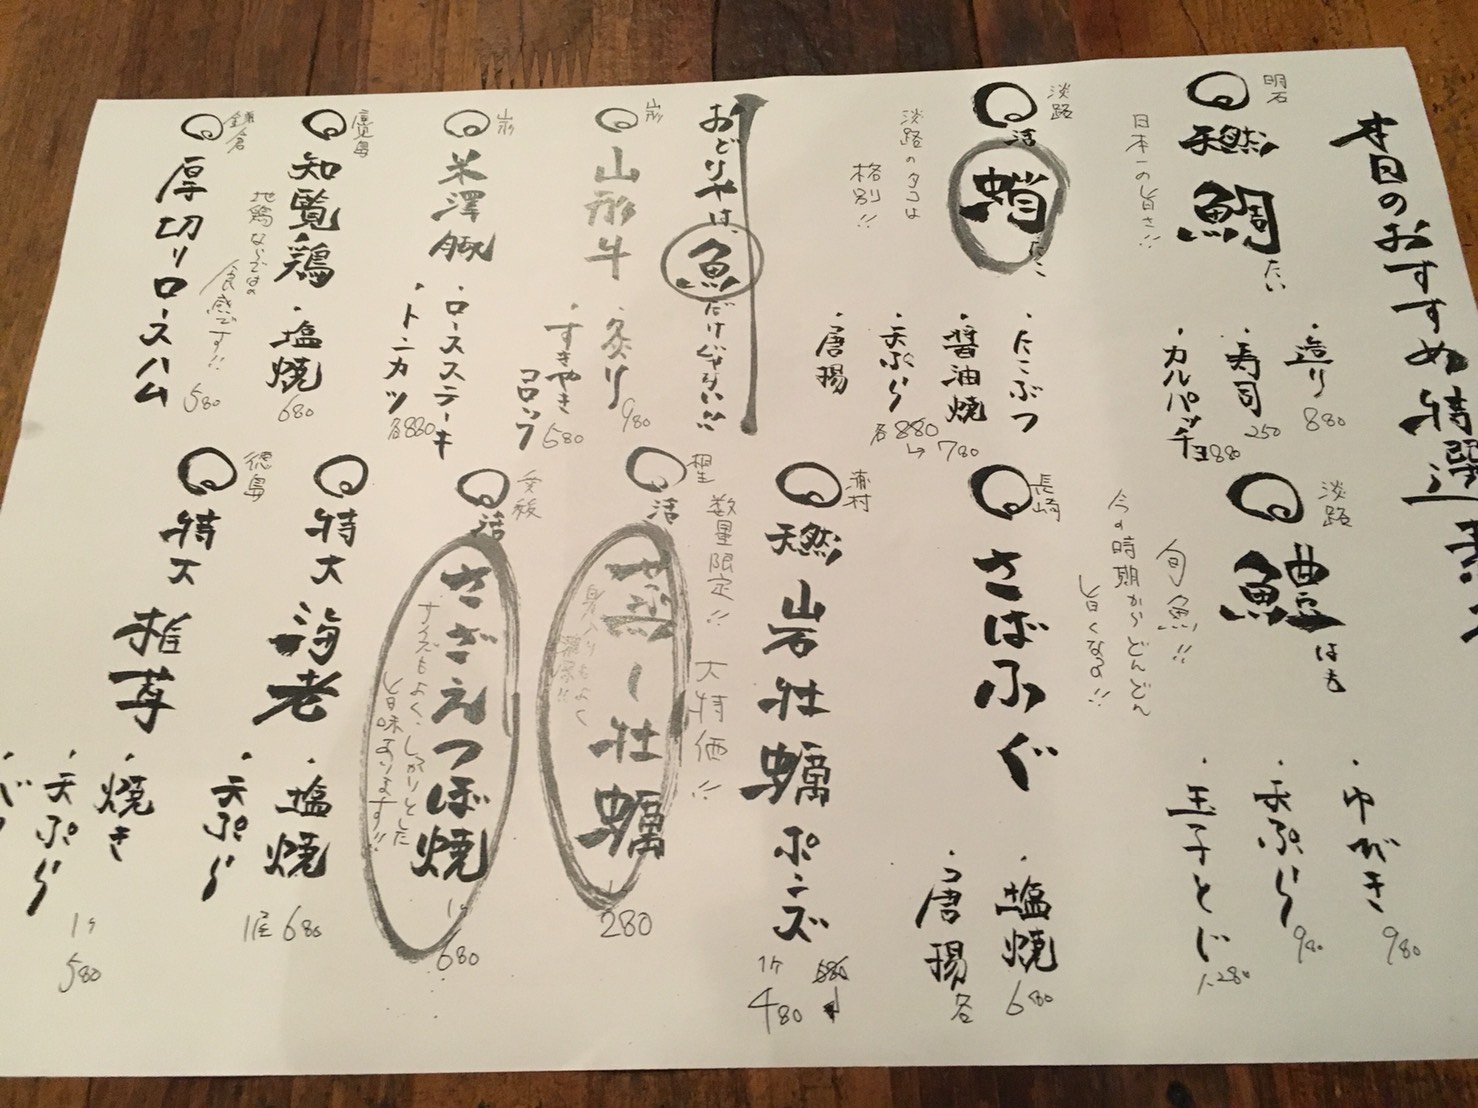 本日のおすすめ特選
明石
天然
鯛
たい
日本一の旨さ!!
・造り 880
・寿司 250
・カルパッチョ 880
淡路
活
蛸
たこ
淡路のタコは
格別!!
・たこぶつ
・醤油焼
・天ぷら
・唐揚
各880
→780
おどりやは、魚だけじゃない!!
山形
山形牛
・炙り 980
・すきやきコロッケ 580
山形
米澤豚
・ロースステーキ
・トンカツ
各880
鹿児島
知覧鶏
地鶏ならではの
食感です!!
・塩焼 680
鎌倉
厚切りロースハム 580
淡路
鱧
はも
旬魚!!
今の時期からどんどん
旨くなる!!
・ゆびき 980
・天ぷら 980
・玉子とじ 1.280
長崎
さばふぐ
・塩焼
・唐揚
各 680
浦村
天然 岩牡蠣ポンズ
1ケ 680
480
数量限定!! 大特価!!
相生
活
蒸し牡蠣
身入りもよく
濃厚!!
1ケ
280
愛媛
活
さざえつぼ焼
サイズもよく、しっかりとした
旨味あります!!
1ケ
680
特大海老
・塩焼
・天ぷら
1尾 680
徳島
特大 椎茸
・焼き
・天ぷら
1ケ
580